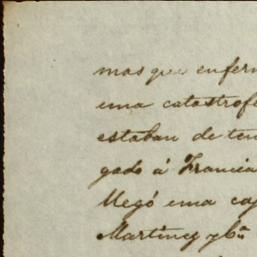 mas que enferm
una catastrofe
estaban de ten
gado á Francia
llegó una ca
Martinez y Cª